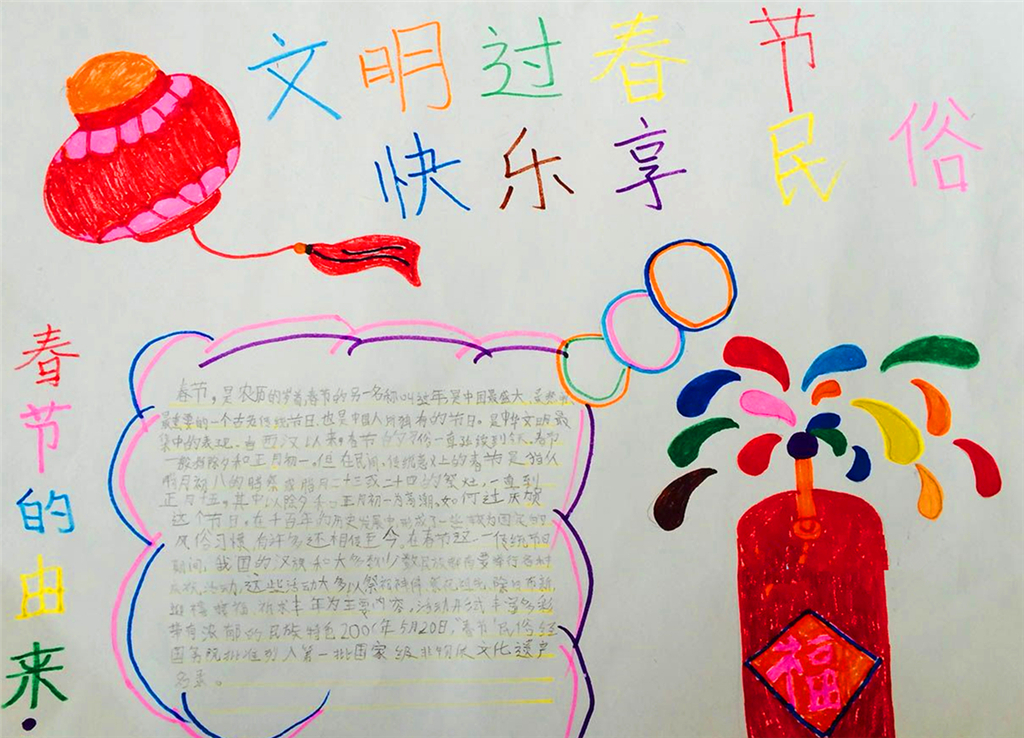 文明过春节
快乐享民俗
春节的由来
春节，是农历的岁首，春节的另一名称叫过年，是中国最盛大、
最重要的一个古老传统节日，也是中国人所独有的节日。是中华文明最
集中的表现。自西汉以来，春节的习俗一直延续到今天。春节
一般指除夕和正月初一。但在民间，传统意义上的春节是指从
腊月初八的腊祭或腊月二十三或二十四的祭灶，一直到
正月十五，其中以除夕和正月初一为高潮。如何过庆贺
这个节日，在千百年的历史发展中，形成了一些较为固定的
风俗习惯，有许多还相传至今。在春节这一传统节日
期间，我国的汉族和大多数少数民族都有要举行各种
活动，这些活动大多以祭祀神佛、祭先祖先、除旧布新、
祈求丰年为主要内容。活动形式丰富多彩，
带有浓郁的民族特色2006年5月20日，“春节”民俗经
国务院批准列入第一批国家级非物质文化遗产
名录。
福